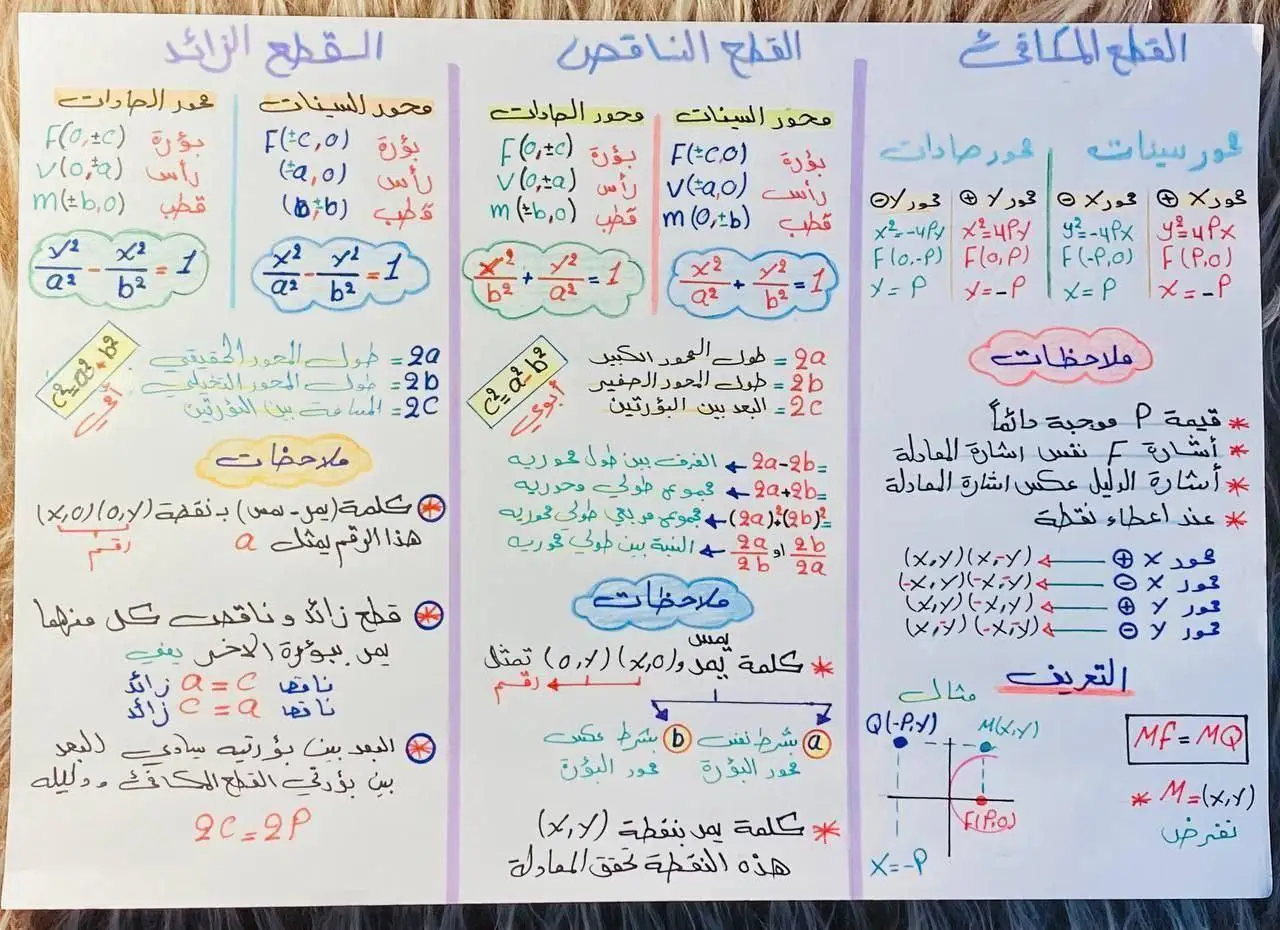 القطع المكافئ
محور سينات
محور صادات
محور X ⊕
y²=4Px
F(P,0)
x=-P
محور X ⊖
y²=-4Px
F(-P,0)
x=P
محور y ⊕
x²=4Py
F(0,P)
y=-P
محور y ⊖
x²=-4Py
F(0,-P)
y=P
ملاحظات
* قيمة P موجبة دائماً
* أشارة F نفس اشارة المعادلة
* أشارة الدليل عكس اشارة المعادلة
* عند اعطاء نقطة
محور x ⊕ ← (x,y)(x,-y)
محور x ⊖ ← (-x,y)(-x,-y)
محور y ⊕ ← (x,y)(-x,y)
محور y ⊖ ← (x,-y)(-x,-y)
التعريف
مثال
Mf=MQ
* M=(x,y)
نفرض
Q(-P,y)
M(x,y)
F(P,0)
X=-P
القطع الناقص
محور السينات
بؤرة F(±c,0)
رأس V(±a,0)
قطب m(0,±b)
x²/a² + y²/b² = 1
محور الصادات
بؤرة F(0,±c)
رأس V(0,±a)
قطب m(±b,0)
x²/b² + y²/a² = 1
2a = طول المحور الكبير
2b = طول المحور الصغير
2c = البعد بين البؤرتين
c²=a²-b²
أبوي
=2a-2b ← الفرق بين طول محوريه
=2a+2b ← مجموع طولي محوريه
=(2a)²+(2b)² ← مجموع مربعي طولي محوريه
2b/2a او 2a/2b ← النسبة بين طولي محوريه
ملاحظات
يمس
* كلمة يمر و(x,0) (0,y) تمثل
رقم
a بشرط نفس محور البؤرة
b بشرط عكس محور البؤرة
* كلمة يمر بنقطة (x,y)
هذه النقطة تحقق المعادلة
القطع الزائد
محور السينات
بؤرة F(±c,0)
رأس (±a,0)
قطب
x²/a² - y²/b² = 1
محور الصادات
بؤرة F(0,±c)
رأس V(0,±a)
قطب m(±b,0)
y²/a² - x²/b² = 1
2a = طول المحور الحقيقي
2b = طول المحور التخيلي
2c = المسافة بين البؤرتين
c²=a²+b²
أمي
ملاحظات
* كلمة (يمر-يمس) بـ نقطة (0,y)(x,0)
رقم
هذا الرقم يمثل a
* قطع زائد و ناقص كل منهما
يمر ببؤرة الاخر يعني
ناقص a = c زائد
ناقص c = a زائد
* البعد بين بؤرتيه يساوي البعد
بين بؤرتي القطع المكافئ ودليله
2c=2P